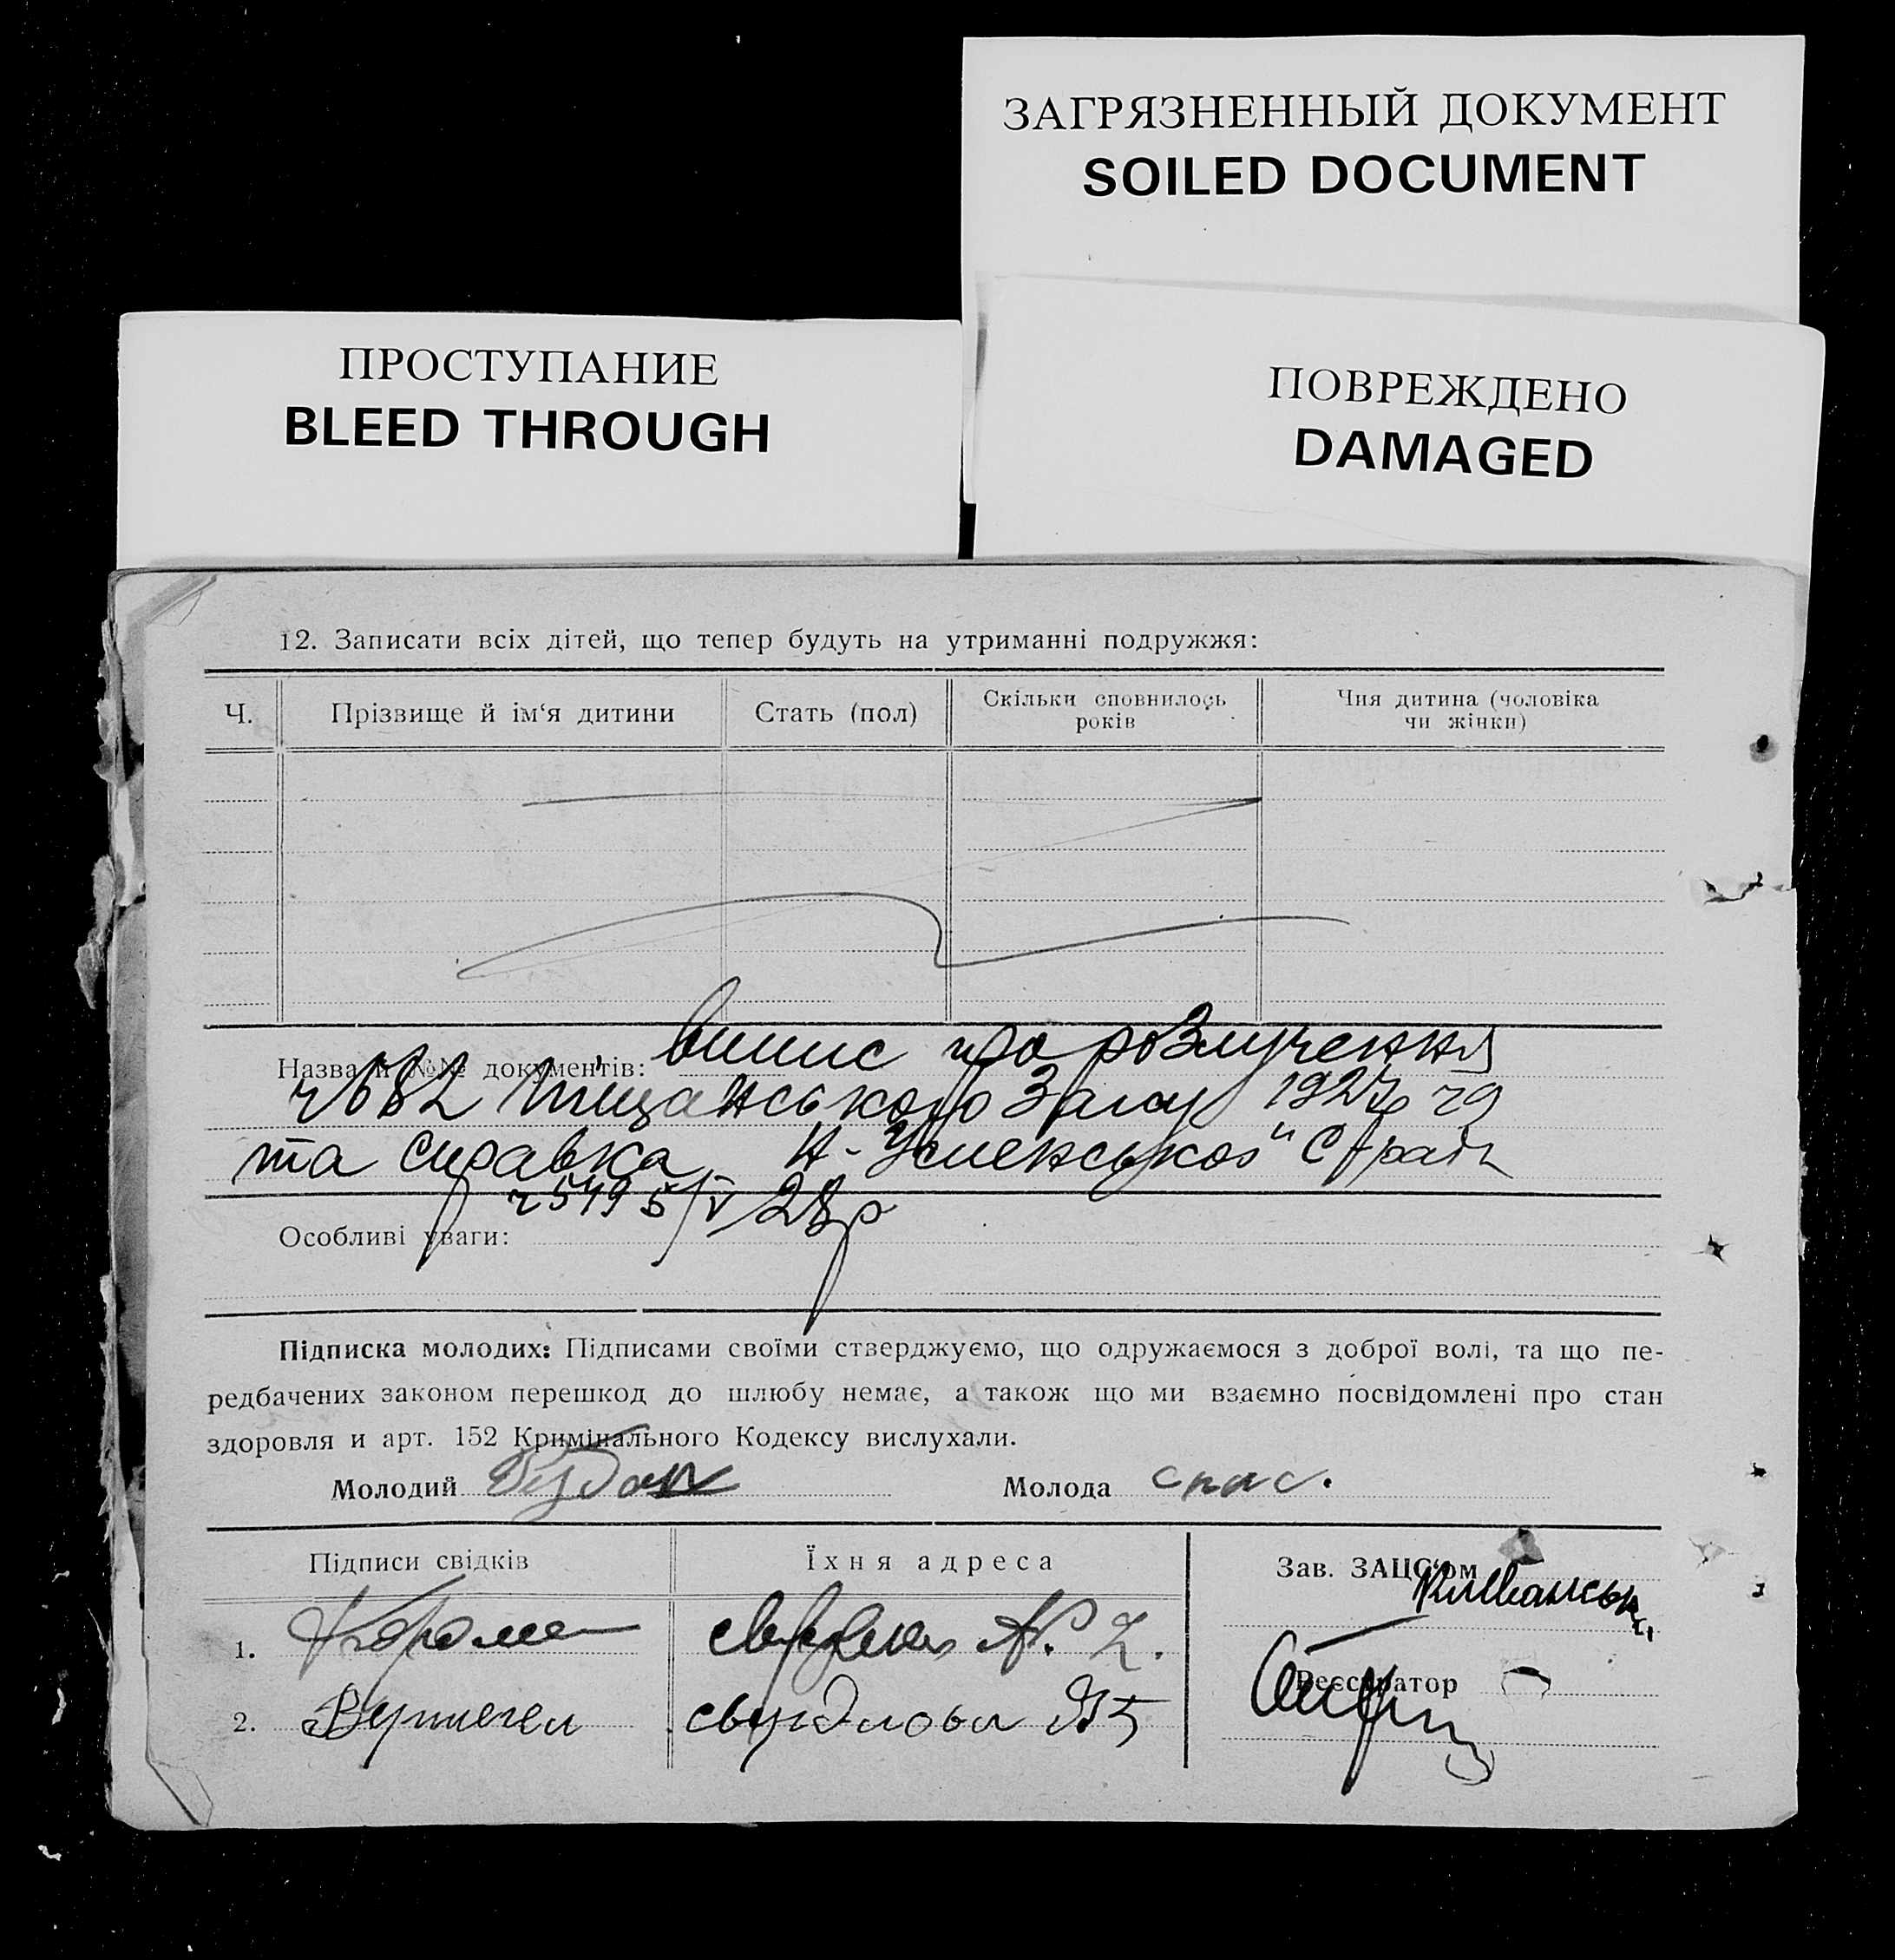 ЗАГРЯЗНЕННЫЙ ДОКУМЕНТ
SOILED DOCUMENT
ПРОСТУПАНИЕ
BLEED THROUGH
ПОВРЕЖДЕНО
DAMAGED
12. Записати всіх дітей, що тепер будуть на утриманні подружжя:
Ч. Прізвище й ім‘я дитини Стать (пол) Скільки сповнилось років Чия дитина (чоловіка чи жінки)
Назва й №№ документів: випис про розлучення
Піщанського Загсу 1927р
та справка Н-Успенської С/ради
ч 549 5/V 28р
Особливі уваги:
Підписка молодих: Підписами своїми стверджуємо, що одружаємося з доброї волі, та що пе-
редбачених законом перешкод до шлюбу немає, а також що ми взаємно посвідомлені про стан
здоровля и арт. 152 Кримінального Кодексу вислухали.
Молодий Молода спас.
Підписи свідків Їхня адреса Зав. ЗАЦС‘ом
1. № 2.
2. свирдлова №5
Реєстратор